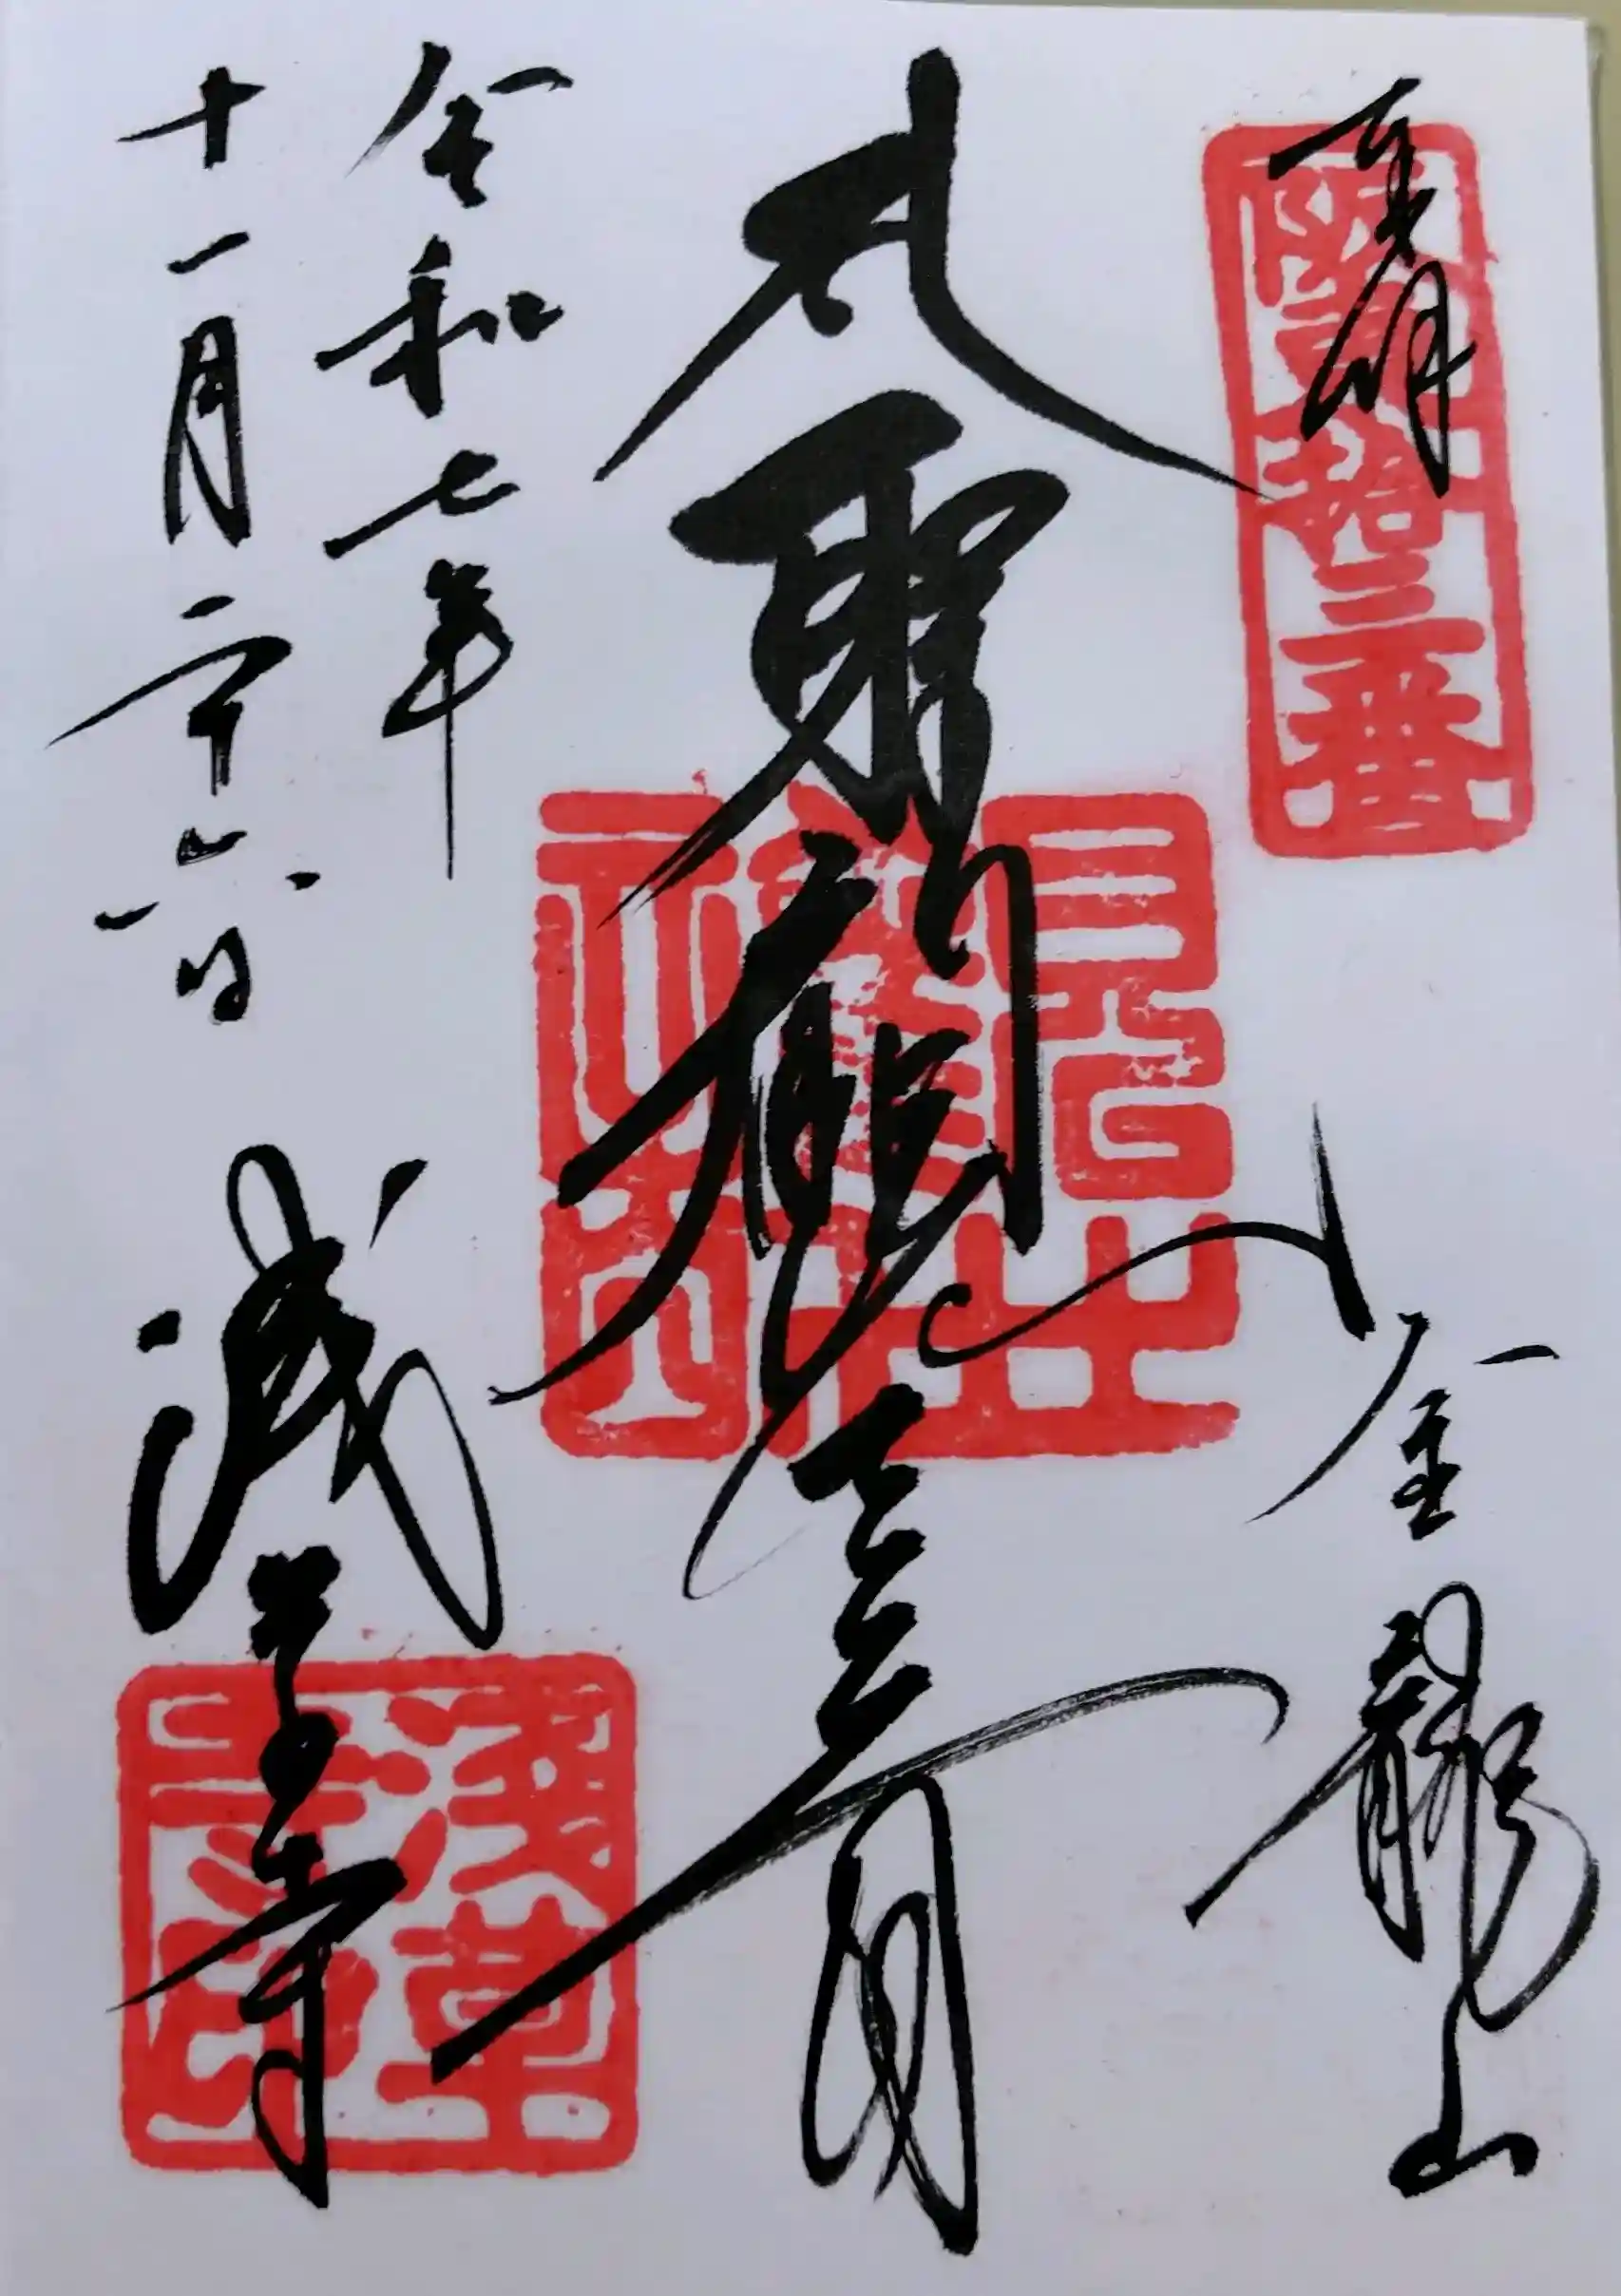 奉拝
金龍山
坂東拾三番
大聖観世音
令和七年
十一月二十六日
浅草寺
浅草寺印